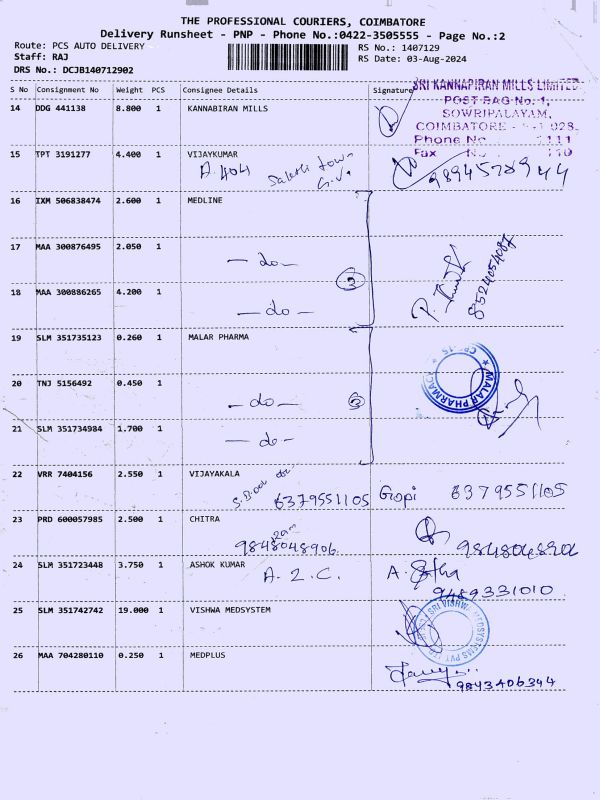 THE PROFESSIONAL COURIERS, COIMBATORE
Delivery Runsheet - PNP - Phone No.:0422-3505555 - Page No.:2
Route: PCS AUTO DELIVERY
Staff: RAJ
DRS No.: DCJB140712902
RS No.: 1407129
RS Date: 03-Aug-2024
S No Consignment No Weight PCS Consignee Details Signature
SRI KANNAPIRAN MILLS LIMITED
POST BAG No: 1,
SOWRIPALAYAM,
COIMBATORE - 028.
Phone No 1111
Fax No 110
14 DDG 441138 8.800 1 KANNABIRAN MILLS
15 TPT 3191277 4.400 1 VIJAYKUMAR
A 404
town
16 IXM 506838474 2.600 1 MEDLINE
17 MAA 300876495 2.050 1
- do -
3
8524054087
18 MAA 300886265 4.200 1
- do -
19 SLM 351735123 0.260 1 MALAR PHARMA
MALAR PHARMACY
20 TNJ 5156492 0.450 1
- do -
3
21 SLM 351734984 1.700 1
- do -
22 VRR 7404156 2.550 1 VIJAYAKALA
6379551105 Gopi 6379551105
23 PRD 600057985 2.500 1 CHITRA
9848048906. 9848048906
24 SLM 351723448 3.750 1 ASHOK KUMAR
A. 2. C.
9489331010
25 SLM 351742742 19.000 1 VISHWA MEDSYSTEM
SRI VISHWA MEDSYSTEMS PVT LTD
26 MAA 704280110 0.250 1 MEDPLUS
9843406344